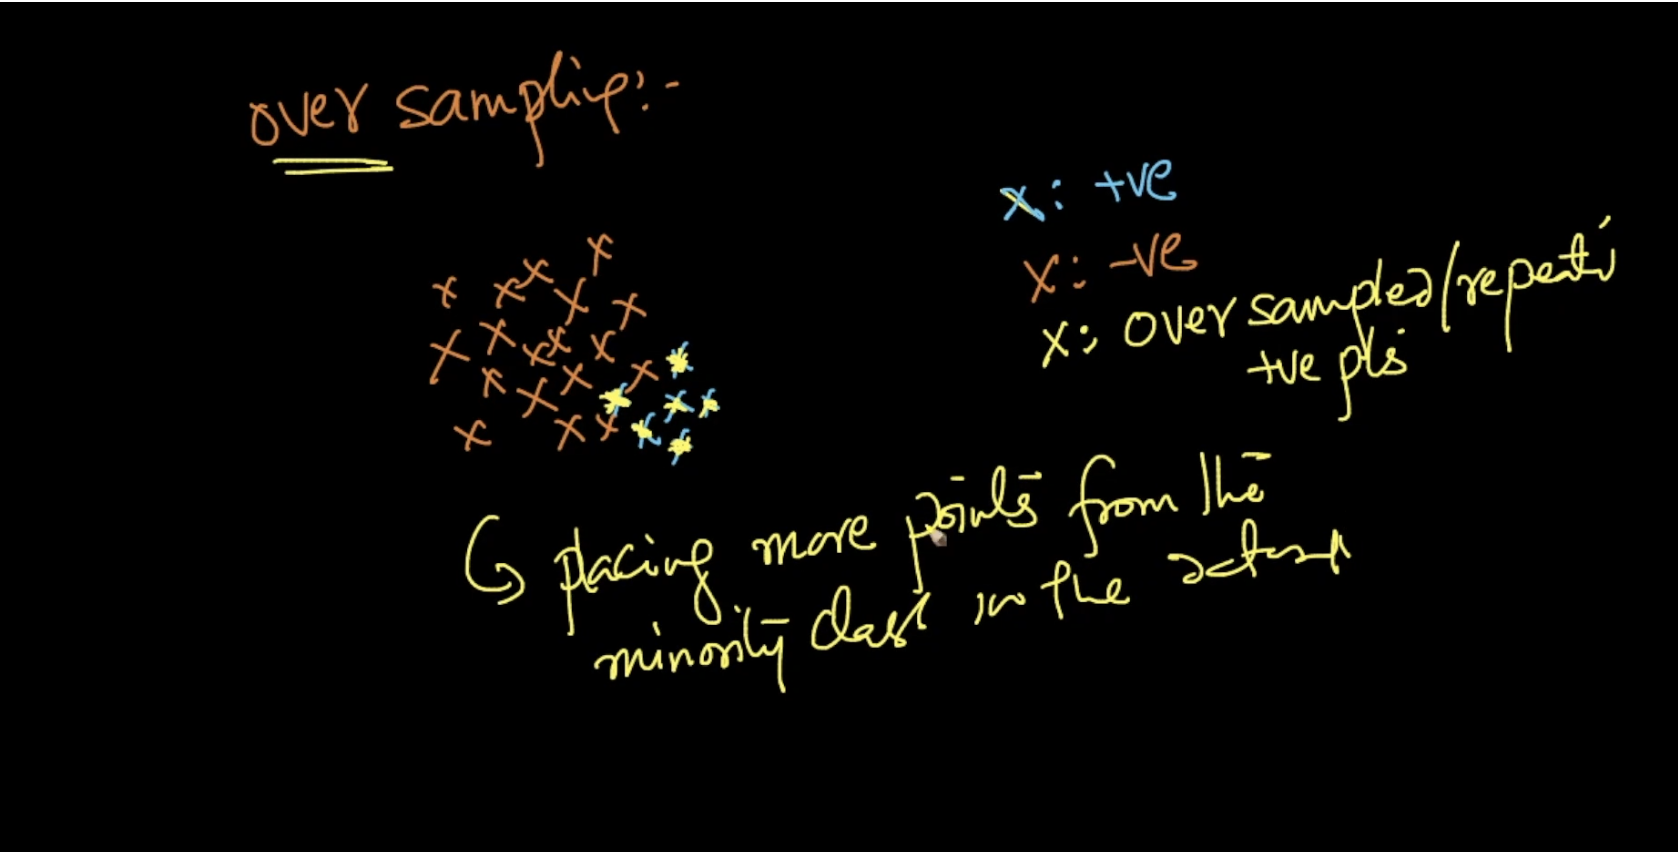 over sampling:-
x: +ve
x: -ve
x: over sampled/repeati
+ve pts
placing more points from the
minority class in the